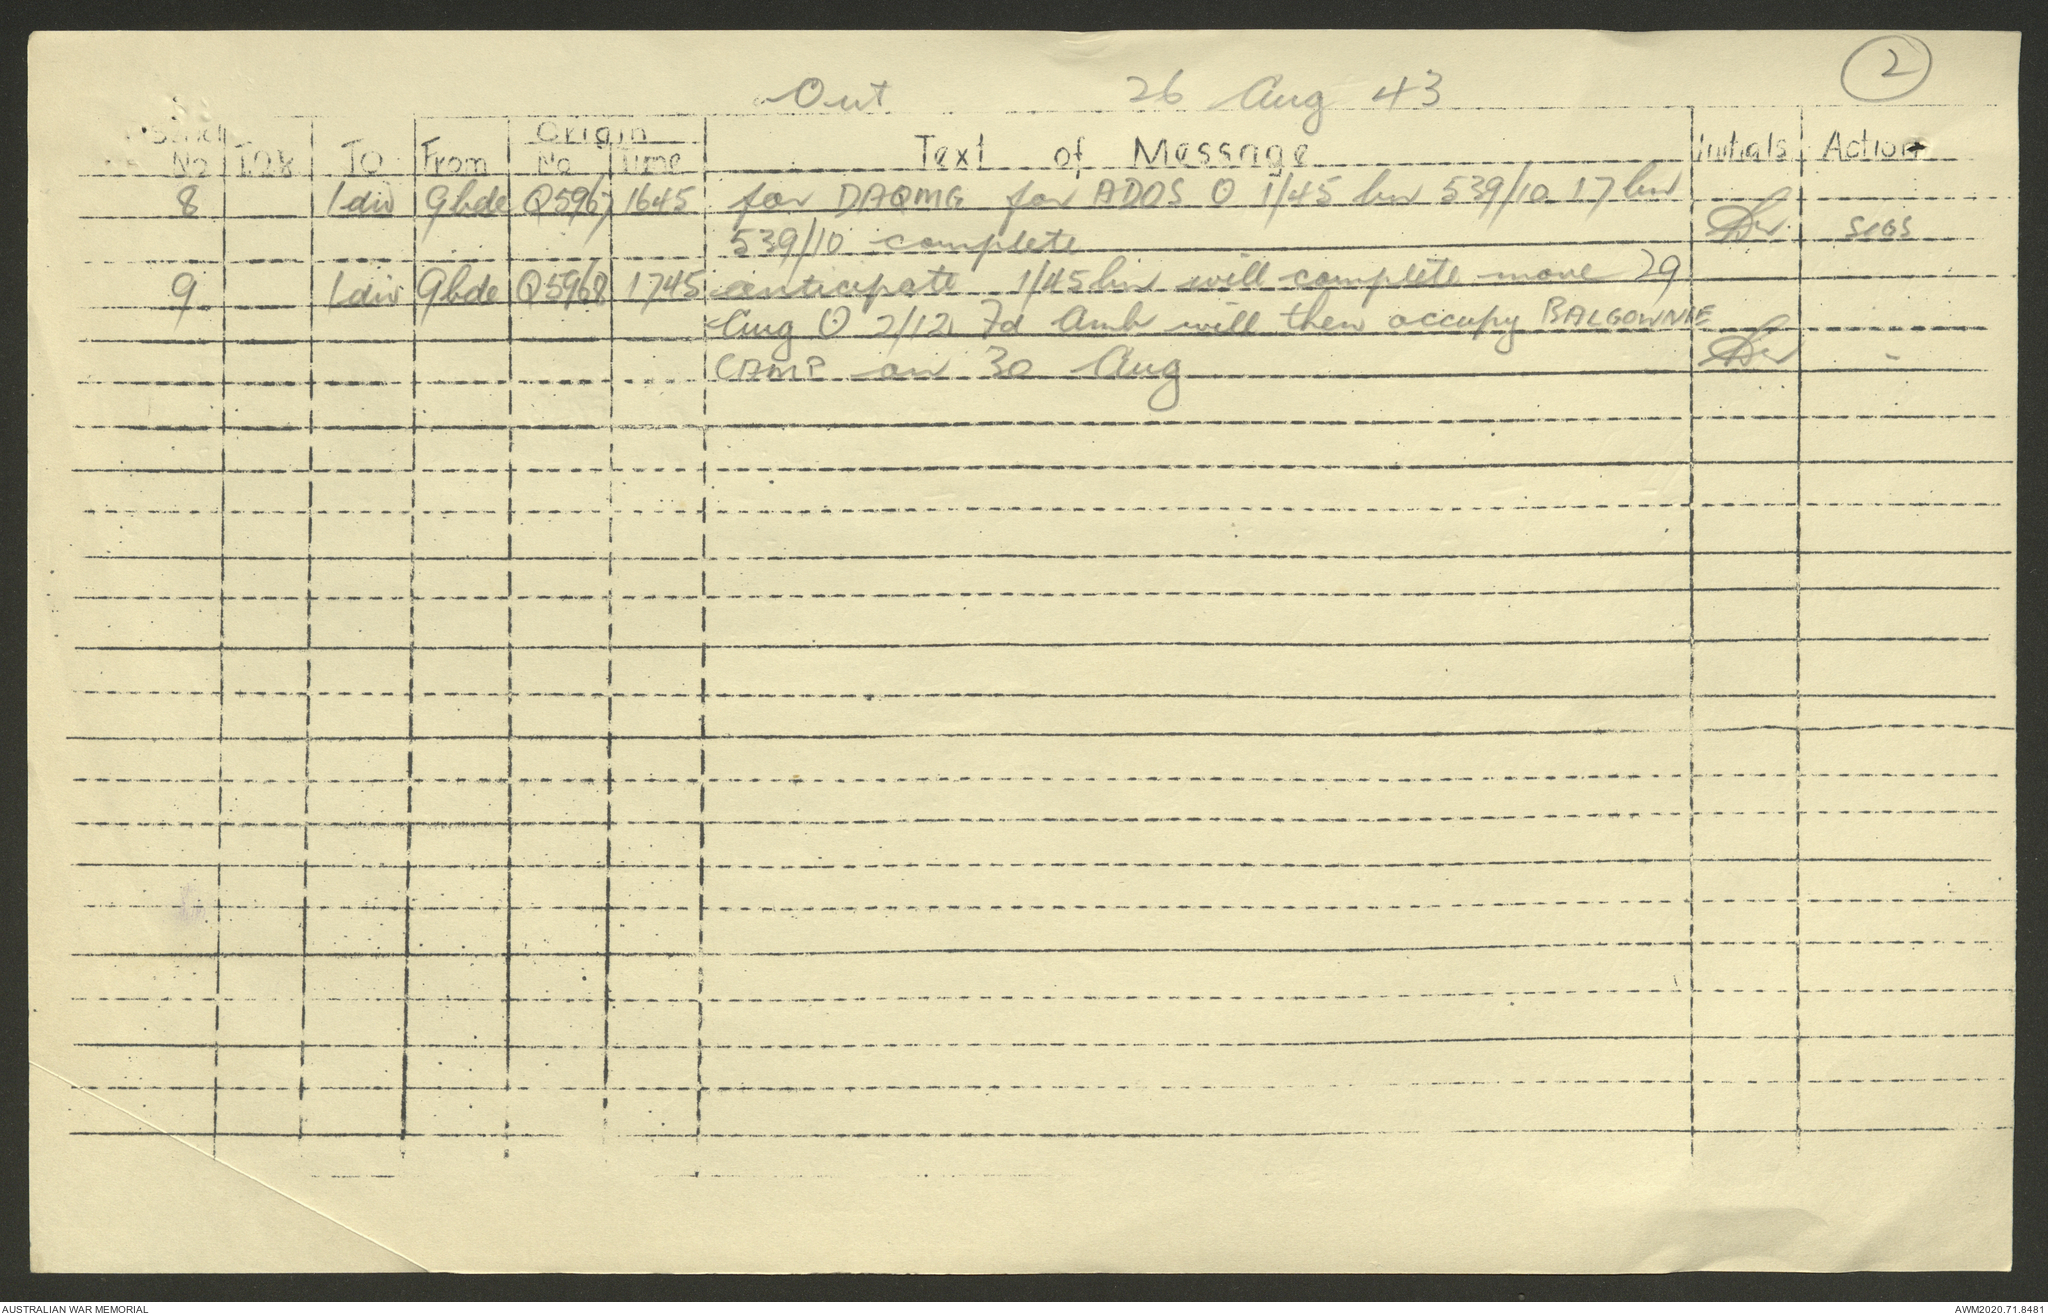 2
Out 26 Aug 43
Origin
No To From No Time Text of Message Initials Action
8 1 div 9 bde Q5967 1645 for DAQMG for ADOS O 1/45 bn 539/10 17 bn
539/10 complete SIGS
9 1 div 9 bde Q5968 1745 anticipate 1/45 bn will complete move 29
Aug O 2/12 Fd Amb will then occupy BALGOWNIE
CAMP on 30 Aug -
AUSTRALIAN WAR MEMORIAL AWM2020.71.8481